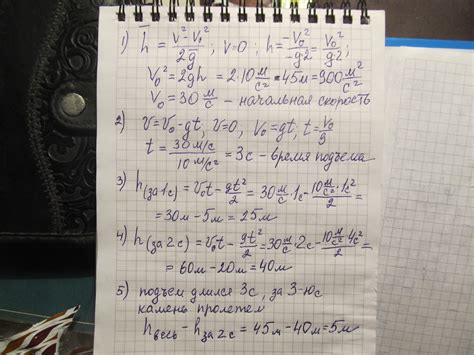 1) h̅ = (v² - v₀²)/(2g̅) ; v=0; h = (-v₀²)/(-g2) = v₀²/(g2);
v₀² = 2gh = 2·10 м/с² · 45м = 900 м²/с²
v₀ = 30 м/с – начальная скорость
2) v = v₀ - gt, v=0, v₀ = gt, t = v₀/g
t = (30 м/с)/(10 м/с²) = 3с – время подъема
3) h(за 1с) = v₀t - gt²/2 = 30 м/с · 1с - (10 м/с² · 1с²)/2 =
= 30м - 5м = 25м
4) h(за 2с) = v₀t - gt²/2 = 30 м/с · 2с - (10 м/с² · 4с²)/2 =
= 60м - 20м = 40м
5) подъем длился 3с, за 3-юс
камень пролетел
hвесь - hза 2с = 45м - 40м = 5м